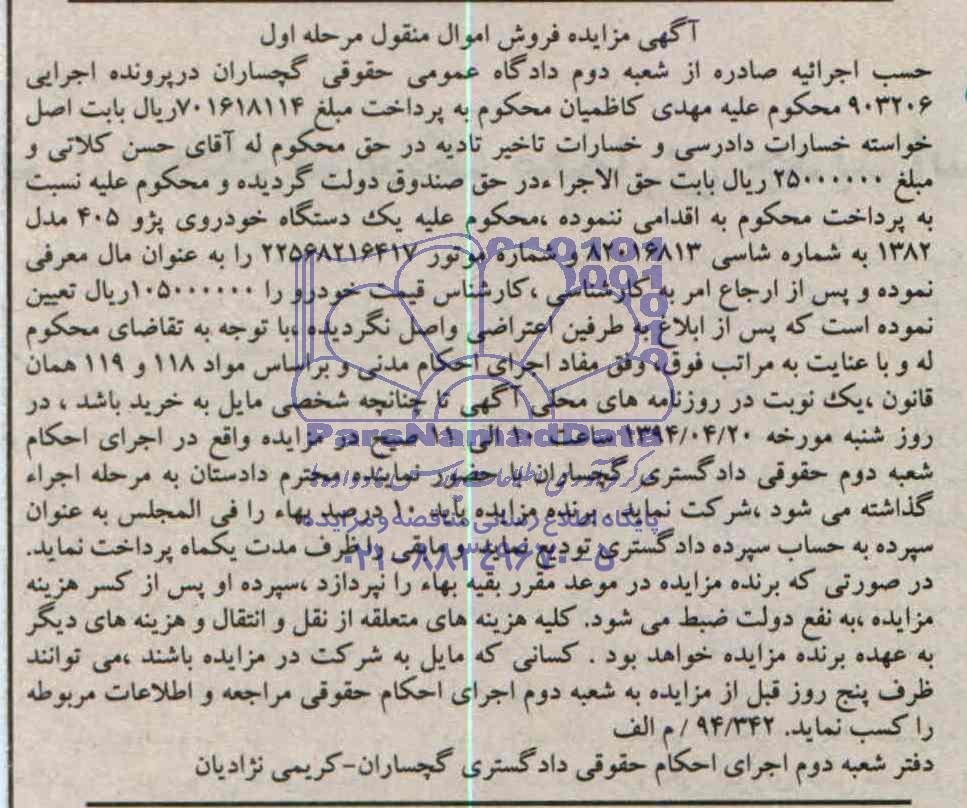 آگهی مزایده فروش اموال منقول مرحله اول
حسب اجرائیه صادره از شعبه دوم دادگاه عمومی حقوقی گچساران درپرونده اجرایی
۹۰۳۲۰۶ محکوم علیه مهدی کاظمیان محکوم به پرداخت مبلغ ۷۰۱۶۱۸۱۱۴ریال بابت اصل
خواسته خسارات دادرسی و خسارات تاخیر تادیه در حق محکوم له آقای حسن کلاتی و
مبلغ ۲۵۰۰۰۰۰۰ ریال بابت حق الاجراءدر حق صندوق دولت گردیده و محکوم علیه نسبت
به پرداخت محکوم به اقدامی ننموده ،محکوم علیه یک دستگاه خودروی پژو ۴۰۵ مدل
۱۳۸۲ به شماره شاسی ۸۲۰۱۶۸۱۳ و شماره موتور ۲۲۵۶۸۲۱۶۴۱۷ را به عنوان مال معرفی
نموده و پس از ارجاع امر به کارشناسی ،کارشناس قیمت خودرو را ۱۰۵۰۰۰۰۰۰ریال تعیین
نموده است که پس از ابلاغ به طرفین اعتراضی واصل نگردیده ،با توجه به تقاضای محکوم
له و با عنایت به مراتب فوق، وفق مفاد اجرای احکام مدنی و براساس مواد ۱۱۸ و ۱۱۹ همان
قانون ،یک نوبت در روزنامه های محلی آگهی تا چنانچه شخصی مایل به خرید باشد ، در
روز شنبه مورخه ۱۳۹۴/۰۴/۲۰ ساعت ۱۰ الی ۱۱ صبح در مزایده واقع در اجرای احکام
شعبه دوم حقوقی دادگستری گچساران با حضور نماینده محترم دادستان به مرحله اجراء
گذاشته می شود ،شرکت نماید . برنده مزایده باید ۱۰ درصد بهاء را فی المجلس به عنوان
سپرده به حساب سپرده دادگستری تودیع نماید و مابقی را ظرف مدت یکماه پرداخت نماید.
در صورتی که برنده مزایده در موعد مقرر بقیه بهاء را نپردازد ،سپرده او پس از کسر هزینه
مزایده ،به نفع دولت ضبط می شود. کلیه هزینه های متعلقه از نقل و انتقال و هزینه های دیگر
به عهده برنده مزایده خواهد بود . کسانی که مایل به شرکت در مزایده باشند ،می توانند
ظرف پنج روز قبل از مزایده به شعبه دوم اجرای احکام حقوقی مراجعه و اطلاعات مربوطه
را کسب نماید. ۹۴/۳۴۲ / م الف
دفتر شعبه دوم اجرای احکام حقوقی دادگستری گچساران-کریمی نژادیان
ParsNamadData
پایگاه اطلاع رسانی مناقصه و مزایده
۰۲۱-۸۸۳۴۹۶۷۰-۵